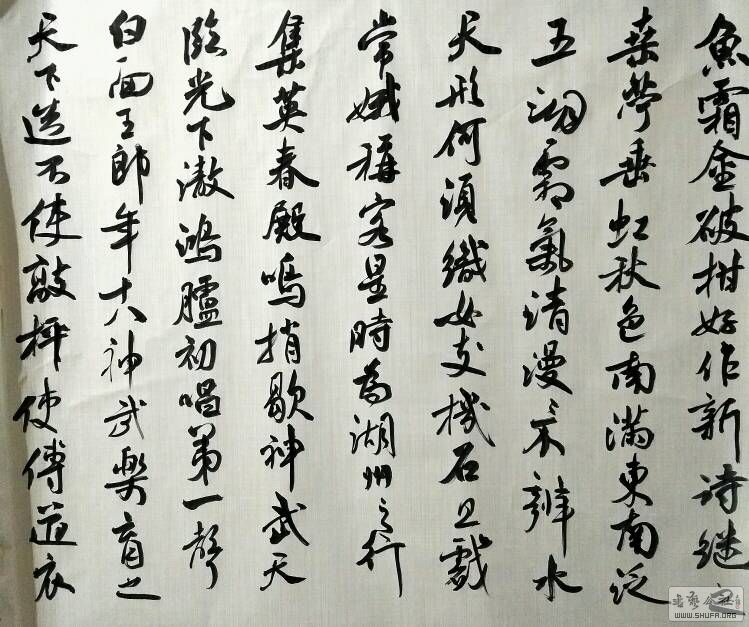 魚霜金破柑好作新詩继
桑苧垂虹秋色南滿東南泛
五湖霜氣清漫〻不辨水
天形何須織女支機石且戲
常娥稱客星時為湖州之行
集英春殿鳴捎歇神武天
臨光下澈鴻臚初唱第一聲
白面王郎年十八神武樂育之
天下造不使敲枰使傅道衣
WWW.SHUFA.ORG